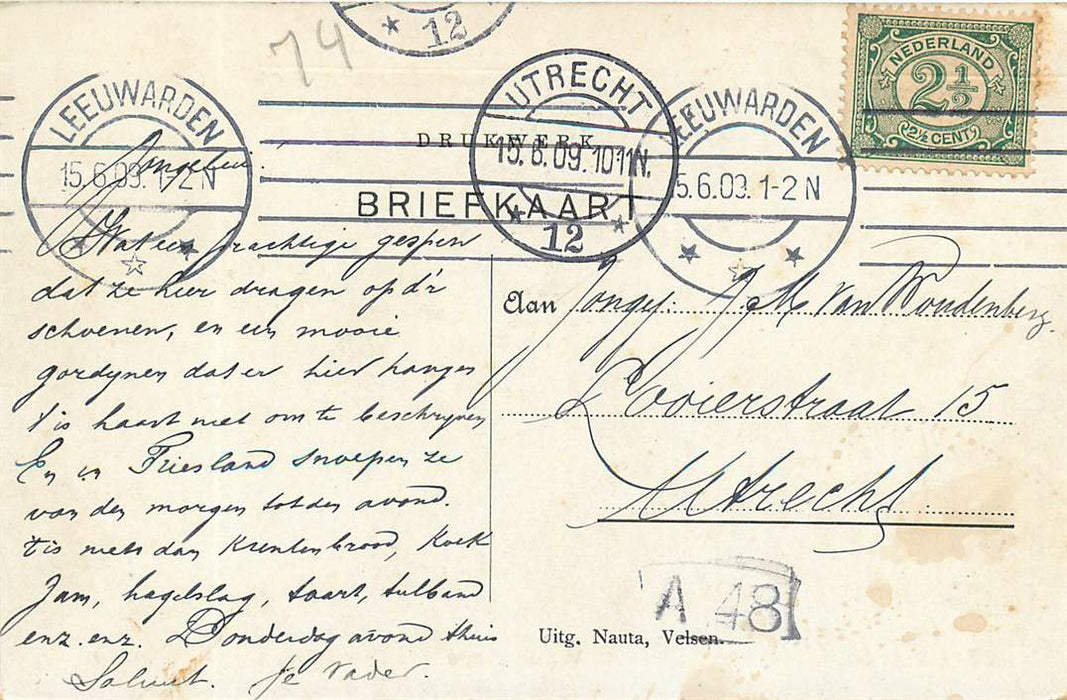 74
12
NEDERLAND
2½
2½ CENT
LEEUWARDEN
15.6.09. 1-2 N
UTRECHT
15.6.09. 10-11 N.
12
LEEUWARDEN
15.6.09. 1-2 N
DRUKWERK
BRIEFKAART
Wat een prachtige gespen
dat ze hier dragen op d'r
schoenen, en een mooie
gordijnen dat er hier hangen
't is haast niet om te beschrijven
En in Friesland snoepen ze
van den morgen tot den avond.
't is niets dan krentenbrood, koek
Jam, hagelslag, taart, tulband
enz. enz. Donderdag avond thuis
Saluut. Je Vader.
Aan Jongej: J. M. van Woudenberg.
Looierstraat 15
Utrecht
A 48
Uitg. Nauta, Velsen.